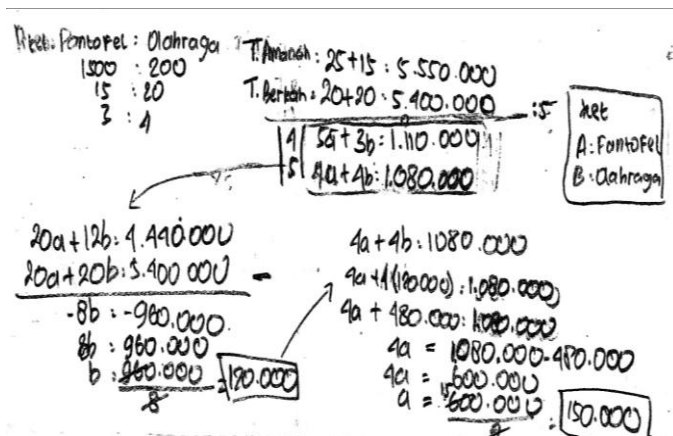 Pantofel : Olahraga
1500 : 200
15 : 20
3 : 4
T. Amanah : 25 + 15 : 5.550.000
T. Berkah : 20 + 20 : 5.400.000
: 5
4 | 5a + 3b : 1.110.000
5 | 4a + 4b : 1.080.000
ket
A : Fantofel
B : Olahraga
20a + 12b : 4.440.000
20a + 20b : 5.400 000 -
-8b : -960.000
8b : 960.000
b : 960.000 / 8 = 120.000
4a + 4b : 1080.000
4a + 4(120000) : 1.080.000
4a + 480.000 : 1.080.000
4a = 1080.000 - 480.000
4a = 600.000
a = 600.000 : 150.000